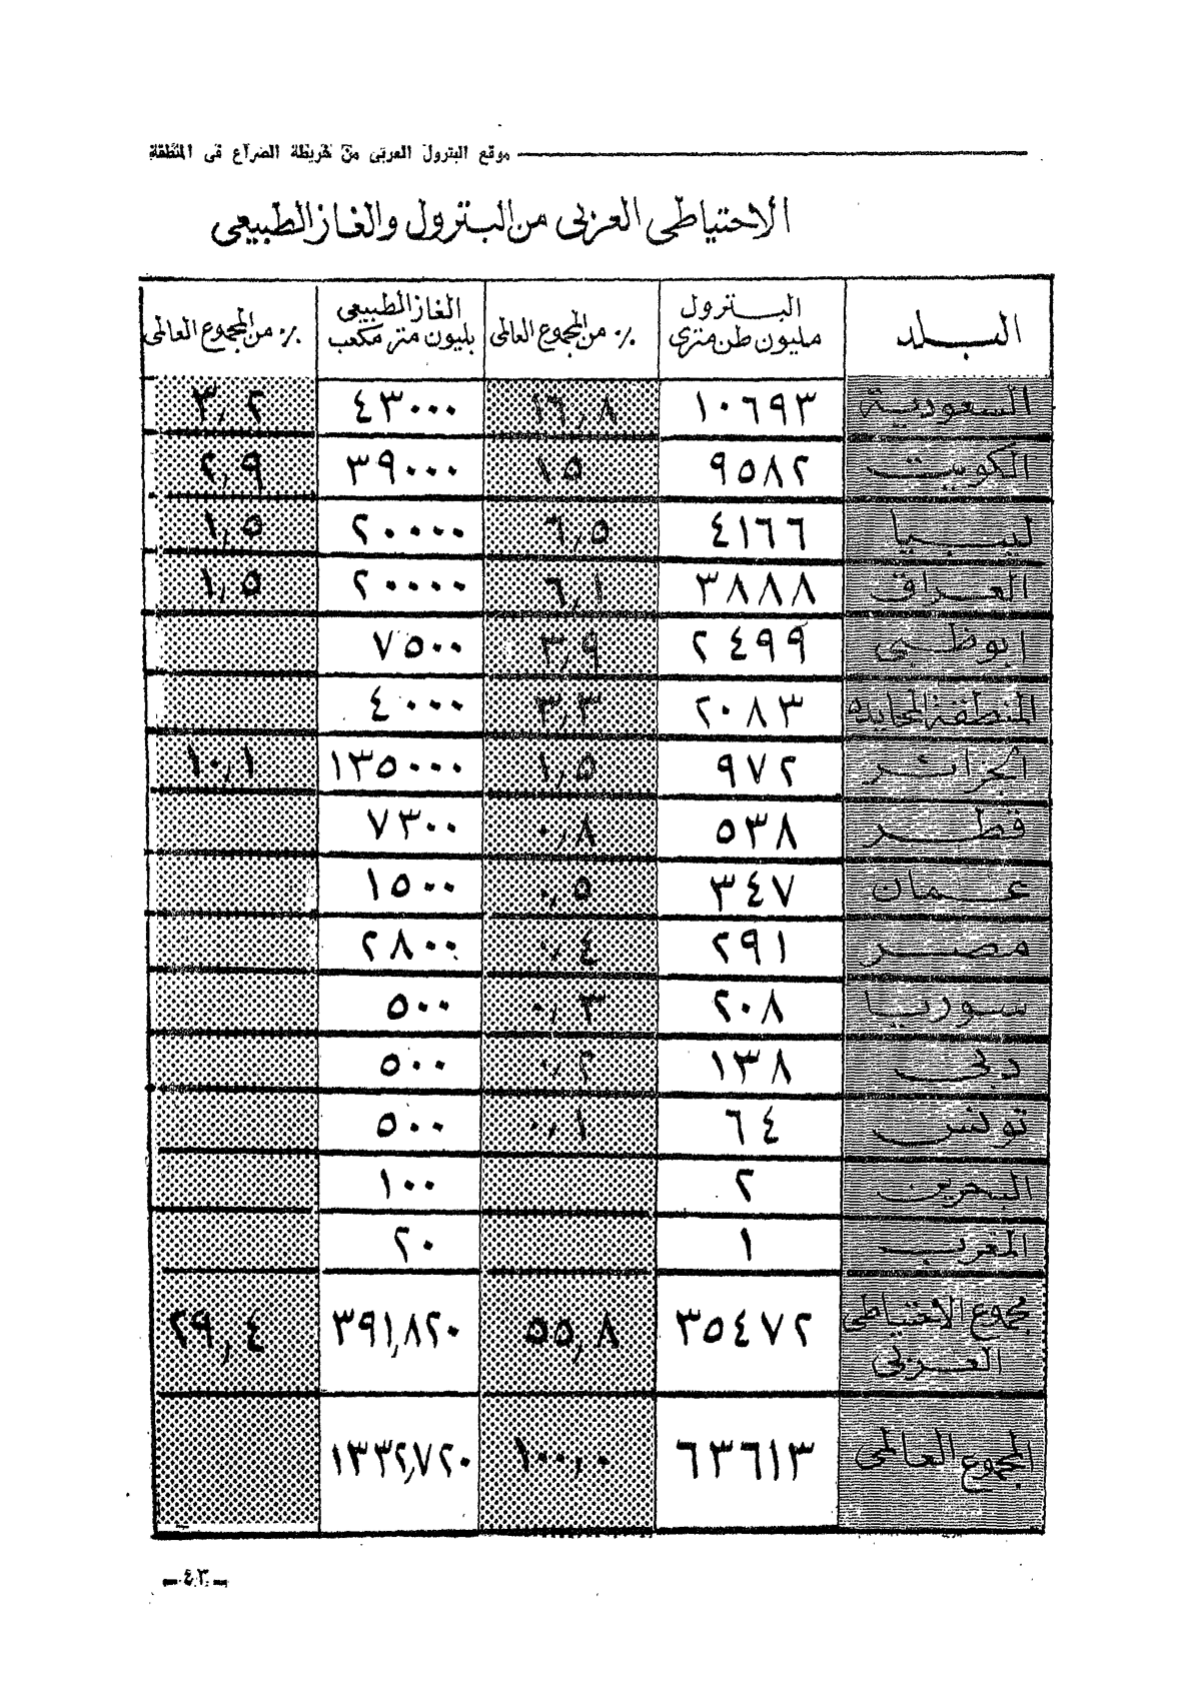 موقع البترول العربى من خريطة الصراع فى المنطقة
الاحتياطى العربى من البترول والغاز الطبيعى
البلد البترول مليون طن مترى ٪ من المجموع العالمى الغاز الطبيعى بليون متر مكعب ٪ من المجموع العالمى
السعودية ١٠٦٩٣ ١٦,٨ ٤٣٠٠٠ ٣,٢
الكويت ٩٥٨٢ ١٥ ٣٩٠٠٠ ٢,٩
ليبيا ٤١٦٦ ٦,٥ ٢٠٠٠٠ ١,٥
العراق ٣٨٨٨ ٦,١ ٢٠٠٠٠ ١,٥
ابوظبى ٢٤٩٩ ٣,٩ ٧٥٠٠
المنطقة المحايدة ٢٠٨٣ ٣,٣ ٤٠٠٠
الجزائر ٩٧٢ ١,٥ ١٣٥٠٠٠ ١٠,١
قطر ٥٣٨ ٠,٨ ٧٣٠٠
عمان ٣٤٧ ٠,٥ ١٥٠٠
مصر ٢٩١ ٠,٤ ٢٨٠٠
سوريا ٢٠٨ ٠,٣ ٥٠٠
دبى ١٣٨ ٠,٢ ٥٠٠
تونس ٦٤ ٠,١ ٥٠٠
البحرين ٢ ١٠٠
المغرب ١ ٢٠
مجموع الاحتياطى العربى ٣٥٤٧٢ ٥٥,٨ ٣٩١,٨٢٠ ٢٩,٤
المجموع العالمى ٦٣٦١٣ ١٠٠,٠ ١٣٣٢,٧٢٠
ـ ٤٣ ـ